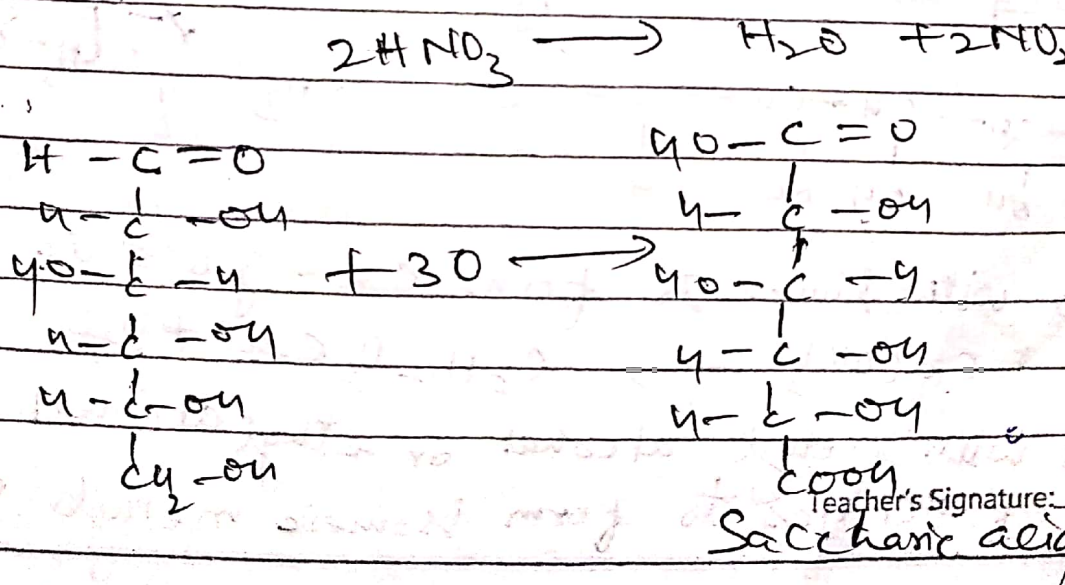 2HNO₃ → H₂O + 2NO₂
H - C = O HO - C = O
H - C - OH H - C - OH
HO - C - H + 3O → HO - C - H
H - C - OH H - C - OH
H - C - OH H - C - OH
CH₂ - OH COOH
Teacher's Signature:
Saccharic acid